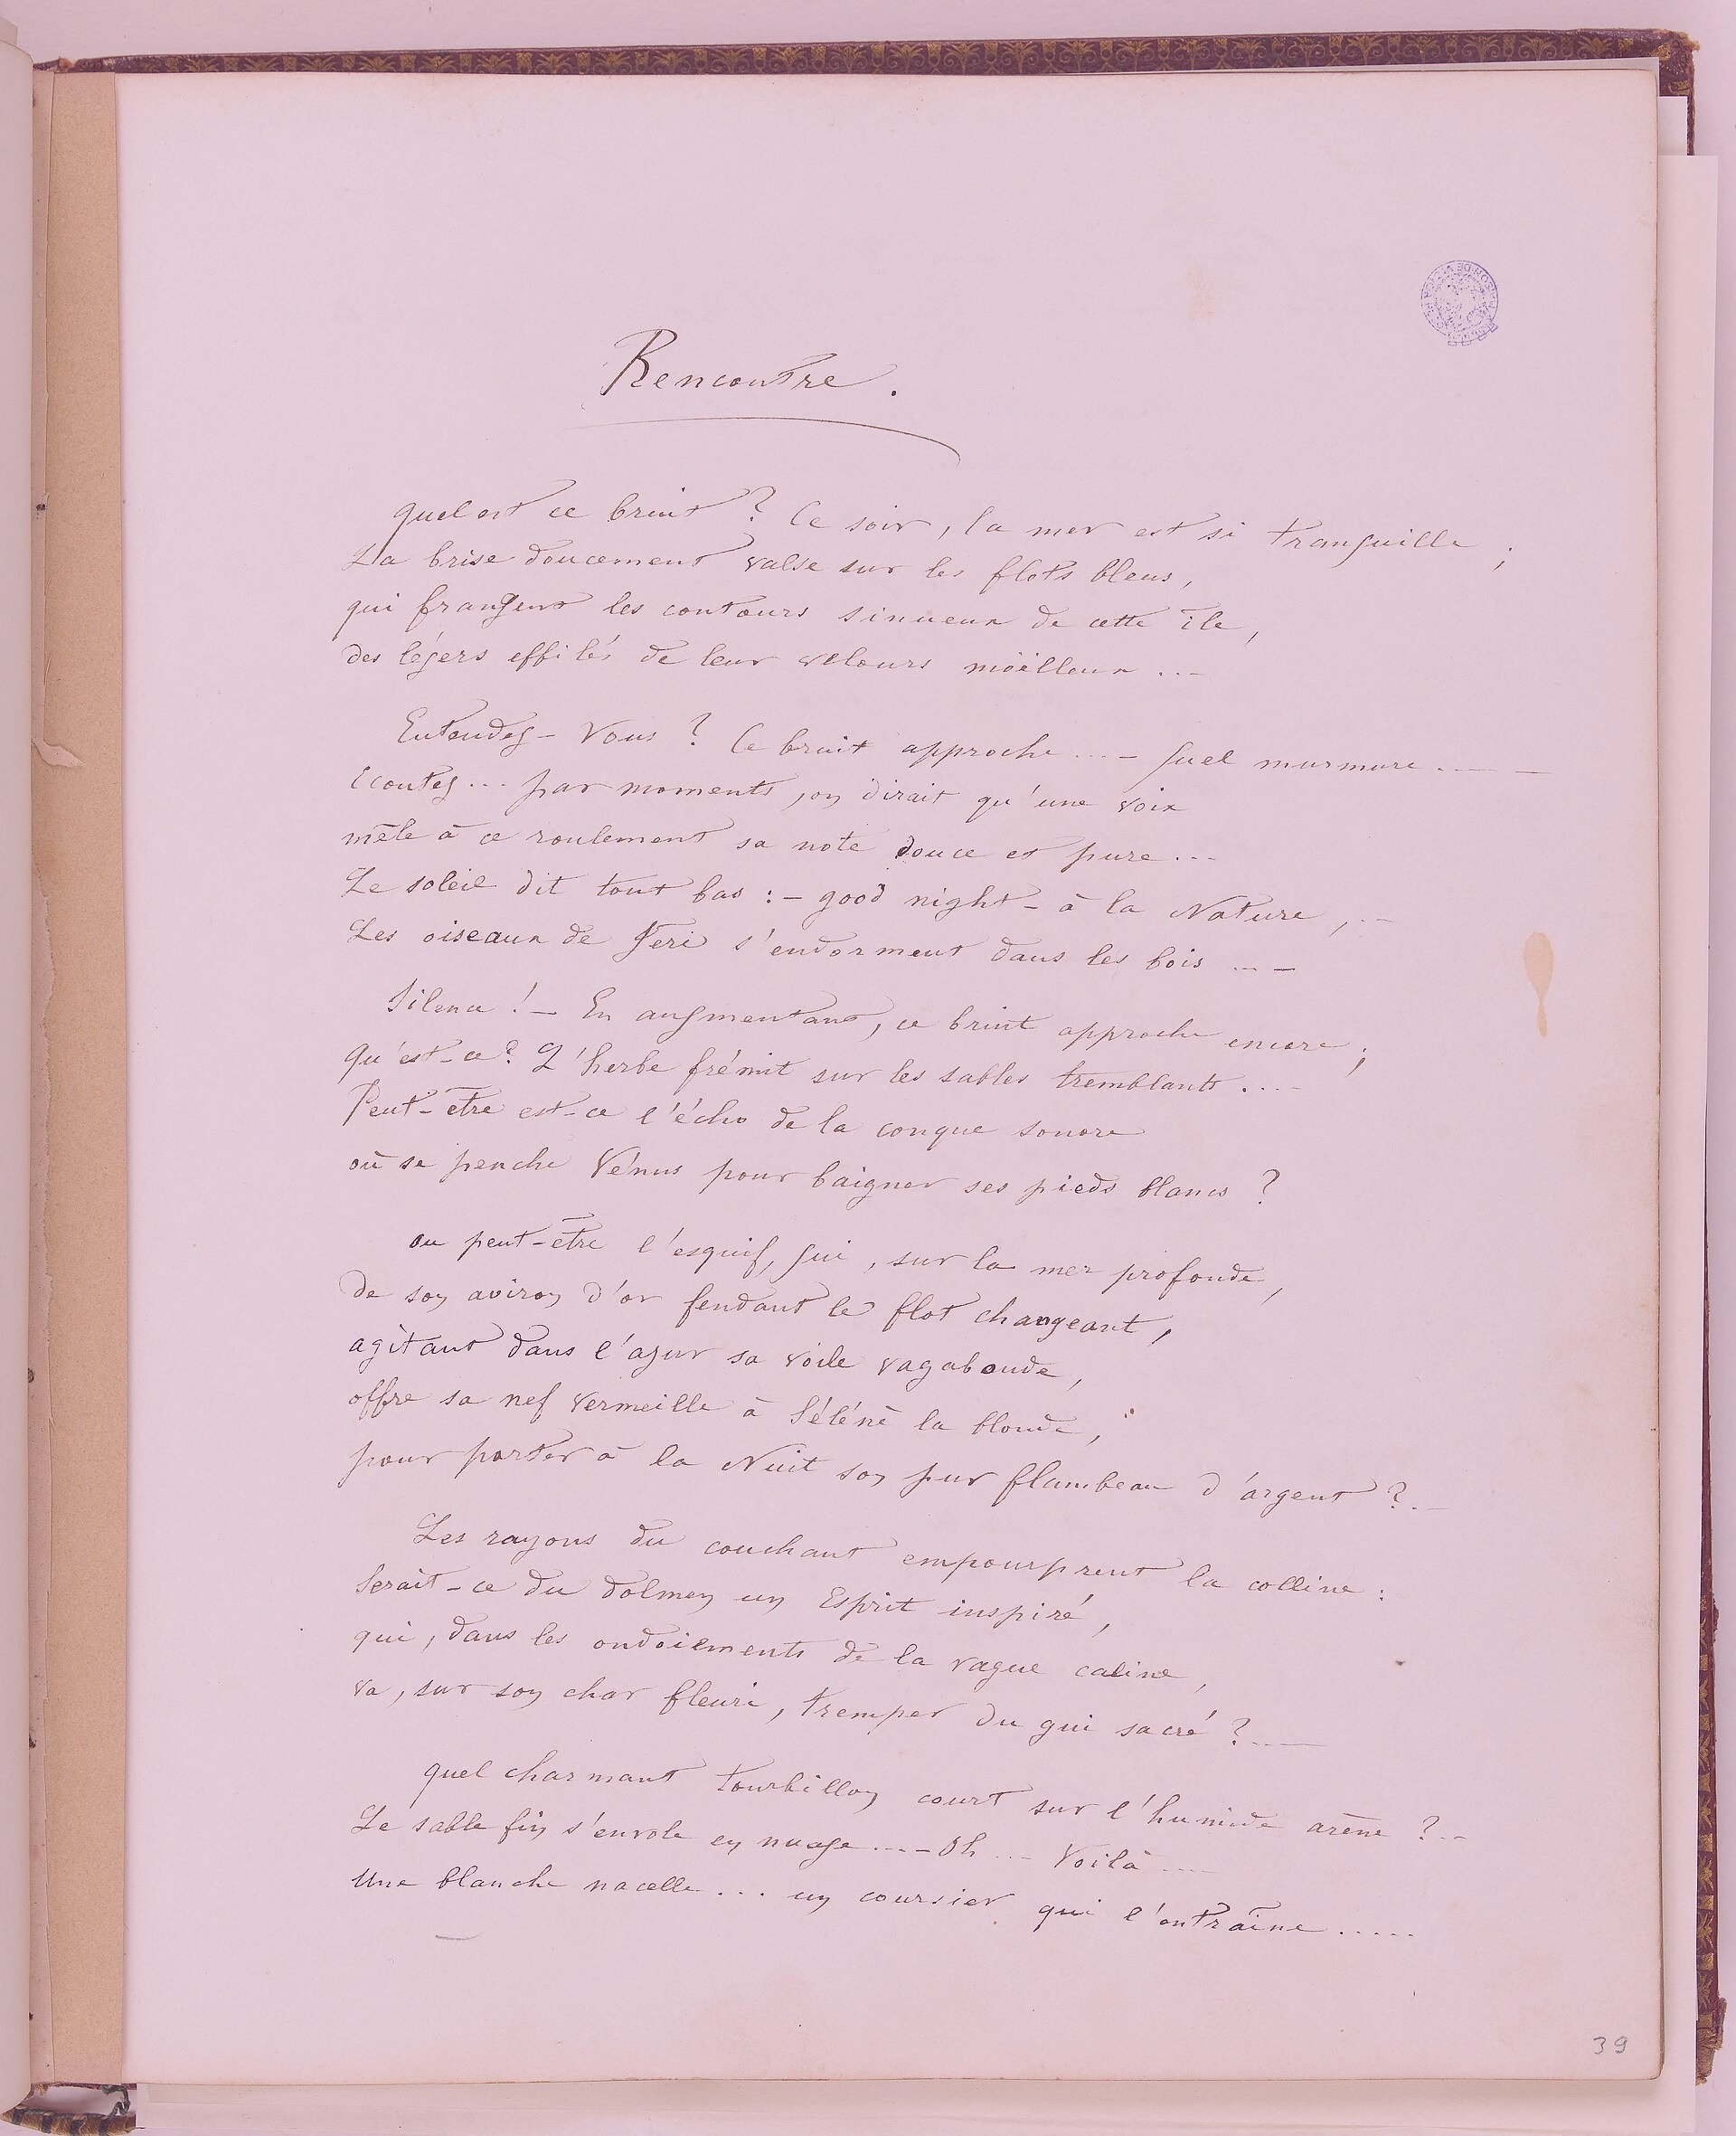 Rencontre.
quel est ce bruit ? Ce soir, la mer est si tranquille ;
La brise doucement valse sur les flots bleus,
qui frangent les contours sinueux de cette île,
des légers effilés de leur velours moëlleux ...
Entendez-vous ? Ce bruit approche ... - quel murmure ... -
Ecoutez ... par moments, on dirait qu'une voix
mêle à ce roulement sa note douce et pure ...
Le soleil dit tout bas : - good night - à la Nature, ...
Les oiseaux de Jeri s'endorment dans les bois ... -
Silence ! - En augmentant, ce bruit approche encore ;
qu'est-ce ? L'herbe frémit sur les sables tremblants ....
Peut-être est-ce l'écho de la conque sonore
où se penche Vénus pour baigner ses pieds blancs ?
ou peut-être l'esquif, qui, sur la mer profonde,
de son aviron d'or fendant le flot changeant,
agitant dans l'azur sa voile vagabonde,
offre sa nef vermeille à Séléné la blonde,
pour porter à la Nuit son pur flambeau d'argent ? ..
Les rayons du couchant empourprent la colline :
Serait-ce du dolmen un Esprit inspiré,
qui, dans les ondoiements de la vague caline,
va, sur son char fleuri, tremper du gui sacré ? ...
quel charmant tourbillon court sur l'humide arène ? ..
Le sable fin s'envole en nuage ... - Oh ... Voilà ....
Une blanche nacelle ... un coursier qui l'entraîne .....
39